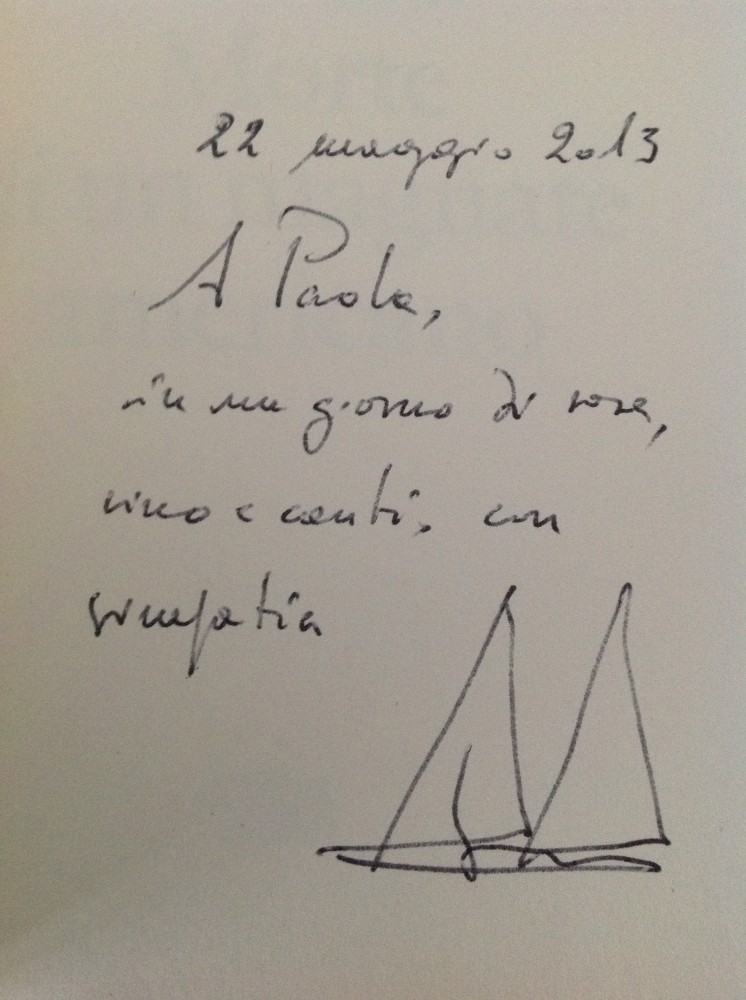 22 maggio 2013
A Paola,
in un giorno di rose,
vino e canti, con
simpatia